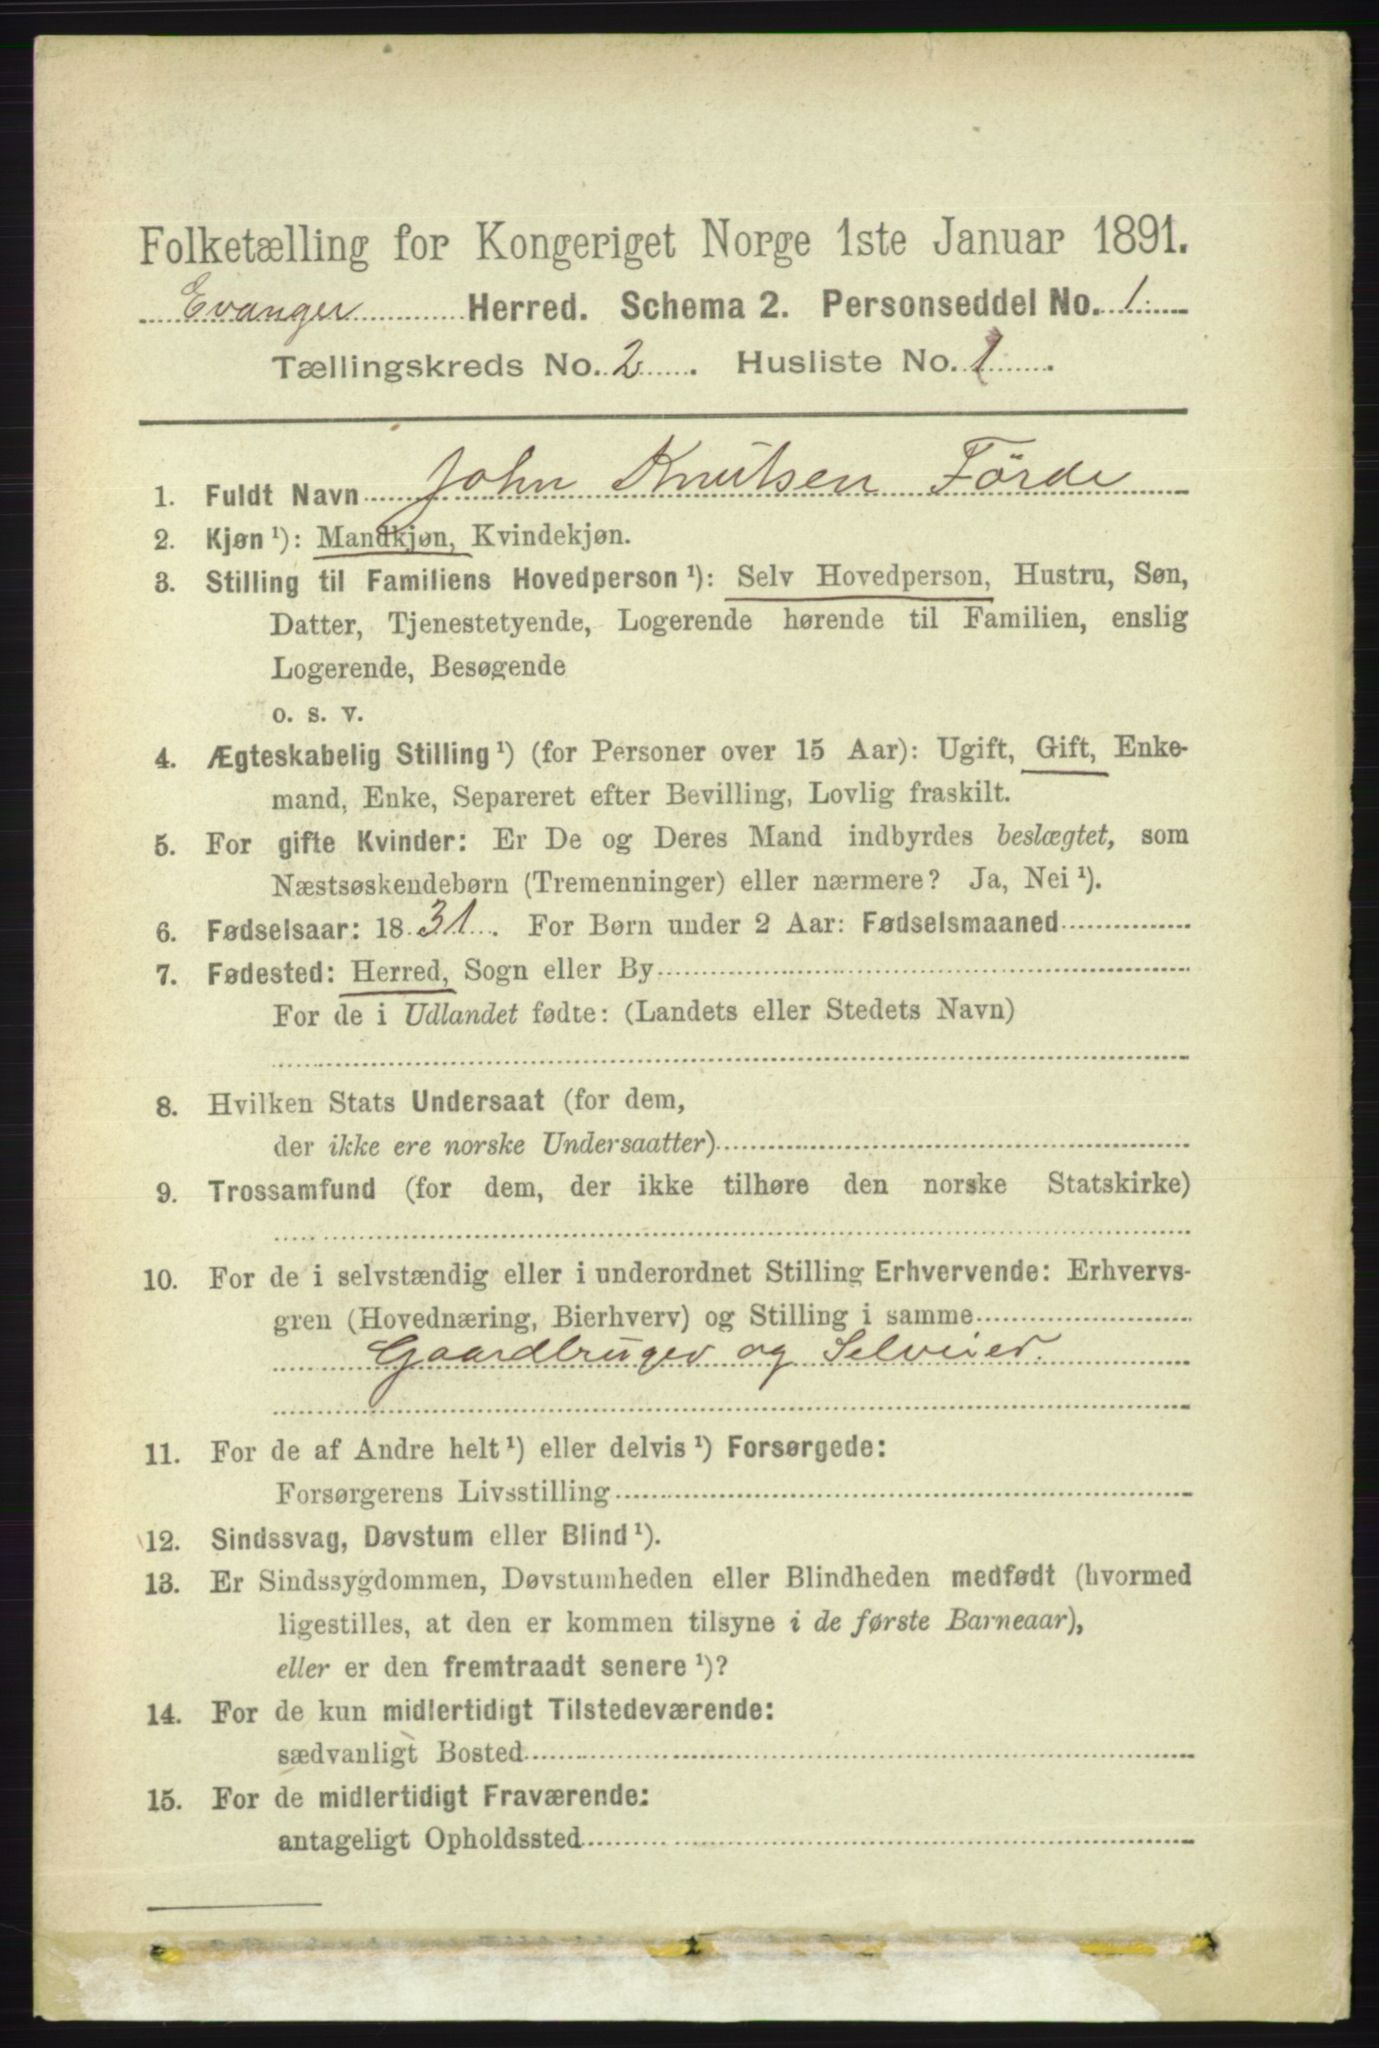 Folketælling for Kongeriget Norge 1ste Januar 1891.
Evanger Herred. Schema 2. Personseddel No. 1
Tællingskreds No. 2. Husliste No. 1.
1. Fuldt Navn John Knutsen Förde
2. Kjøn ¹): Mandkjøn, Kvindekjøn.
3. Stilling til Familiens Hovedperson ¹): Selv Hovedperson, Hustru, Søn,
Datter, Tjenestetyende, Logerende hørende til Familien, enslig
Logerende, Besøgende
o. s. v.
4. Ægteskabelig Stilling ¹) (for Personer over 15 Aar): Ugift, Gift, Enke-
mand, Enke, Separeret efter Bevilling, Lovlig fraskilt.
5. For gifte Kvinder: Er De og Deres Mand indbyrdes beslægtet, som
Næstsøskendebørn (Tremenninger) eller nærmere? Ja, Nei ¹).
6. Fødselsaar: 1831. For Børn under 2 Aar: Fødselsmaaned
7. Fødested: Herred, Sogn eller By
For de i Udlandet fødte: (Landets eller Stedets Navn)
8. Hvilken Stats Undersaat (for dem,
der ikke ere norske Undersaatter)
9. Trossamfund (for dem, der ikke tilhøre den norske Statskirke)
10. For de i selvstændig eller i underordnet Stilling Erhvervende: Erhvervs-
gren (Hovednæring, Bierhverv) og Stilling i samme
Gaardbruger og Selveier.
11. For de af Andre helt ¹) eller delvis ¹) Forsørgede:
Forsørgerens Livsstilling
12. Sindssvag, Døvstum eller Blind ¹).
13. Er Sindssygdommen, Døvstumheden eller Blindheden medfødt (hvormed
ligestilles, at den er kommen tilsyne i de første Barneaar),
eller er den fremtraadt senere ¹)?
14. For de kun midlertidigt Tilstedeværende:
sædvanligt Bosted
15. For de midlertidigt Fraværende:
antageligt Opholdssted